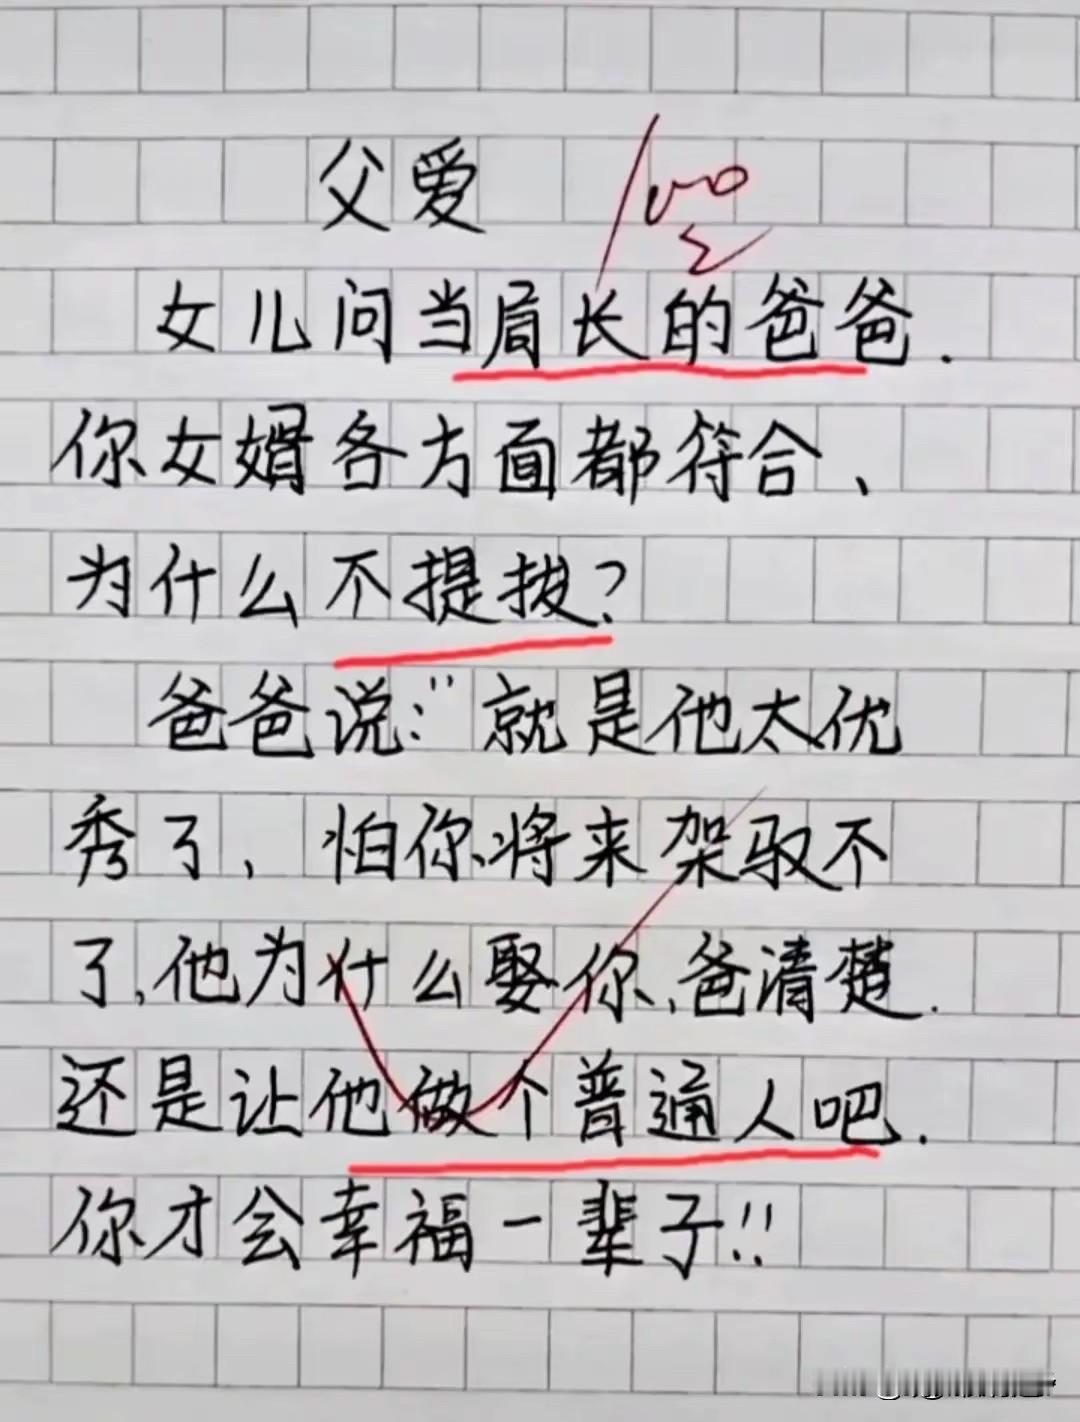 父爱
100
女儿问当局长的爸爸.
你女婿各方面都符合、
为什么不提拔?
爸爸说:"就是他太优
秀了,怕你将来架驭不
了,他为什么娶你,爸清楚.
还是让他做个普通人吧.
你才会幸福一辈子!!